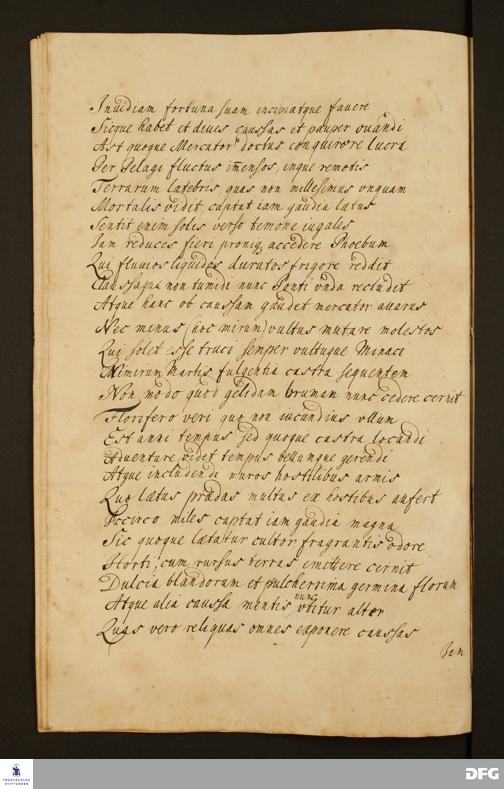 Inuidiam fortuna suam incipiatque fauere
Sicque habet et diues caussas et pauper ouandi
Ast quoque Mercator doctus conquirere lucra
Per Pelagi fluctus im̄ensos, inque remotis
Terrarum latebris, quas non millesimus vnquam
Mortalis vidit captat iam gaudia lætus
Sentit enim solis verso temone iugales
Iam reduces fieri pronisq accedere Phoebum
Qui fluuios liquidos duratos frigore reddit
Claussaque non tumidi nunc Ponti vnda recludit
Atque hanc ob caussam gaudet mercator auarus
Nec minus (hoc mirum) vultus mutare molestos
Qui solet esse truci semper vultuque Minaci
Nimirum Martis fulgentia castra sequentem
Non modo quod gelidam brumam nunc cedere cernit
Florifero veri quo non iucundius vllum
Est anni tempus sed quoque castra locandi
Aduentare videt tempus bellumque gerendi
Atque includendi muros hostilibus armis
Quo lætus prædas multas ex hostibus aufert
Iccirco miles captat iam gaudia magna
Sic quoque lætatur cultor fragrantis odore
Horti, cum rursus terras emittere cernit
Dulcia blandorum et pulcherrima germina florum
Atque alia caussa mentis nunc vtitur alter
Quas vero reliquas omnes exponere caussas
Iam
DFG
FRANCKESCHE
STIFTUNGEN